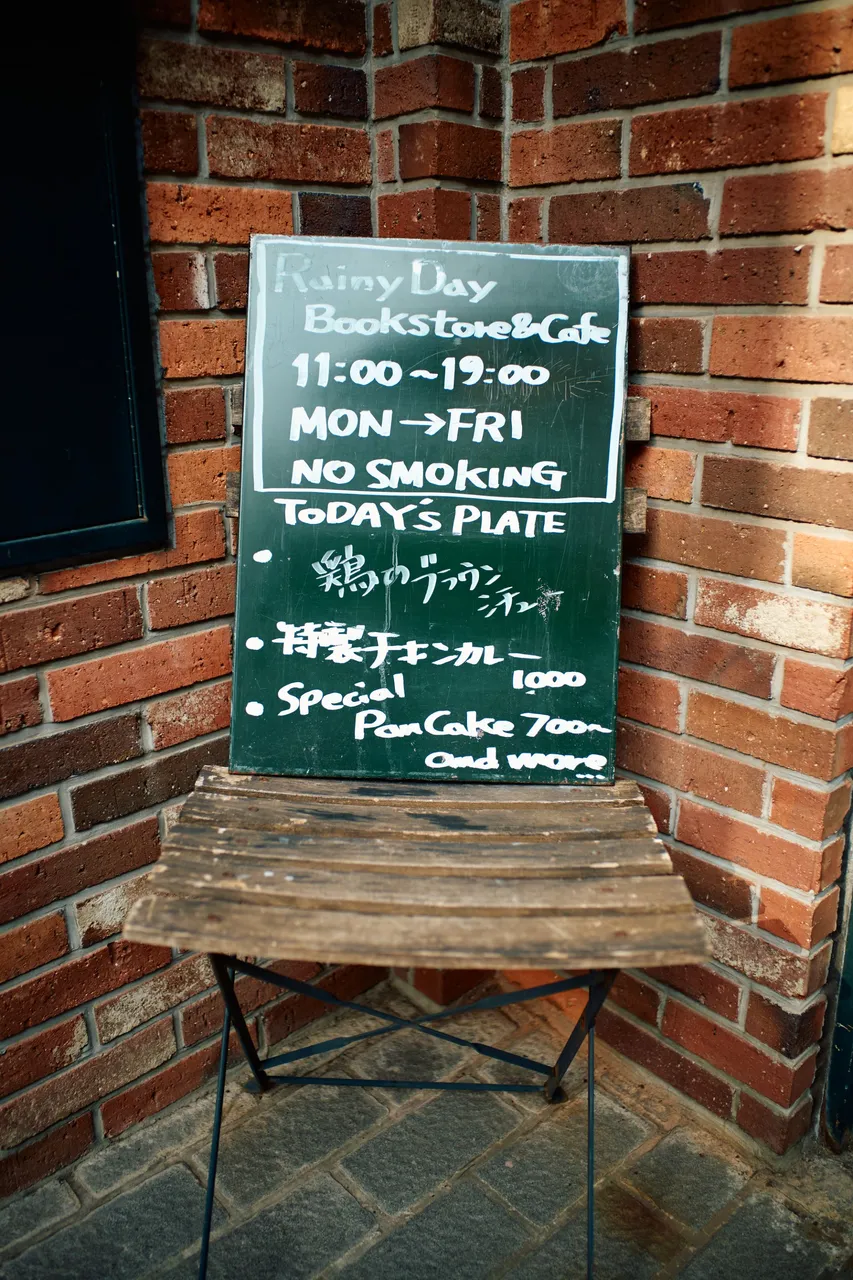 Rainy Day
Bookstore&Cafe
11:00~19:00
MON→FRI
NO SMOKING
TODAY'S PLATE
• 鶏のブラウン
シチュー
• 特製チキンカレー
1000
• Special
PanCake 700~
and more...